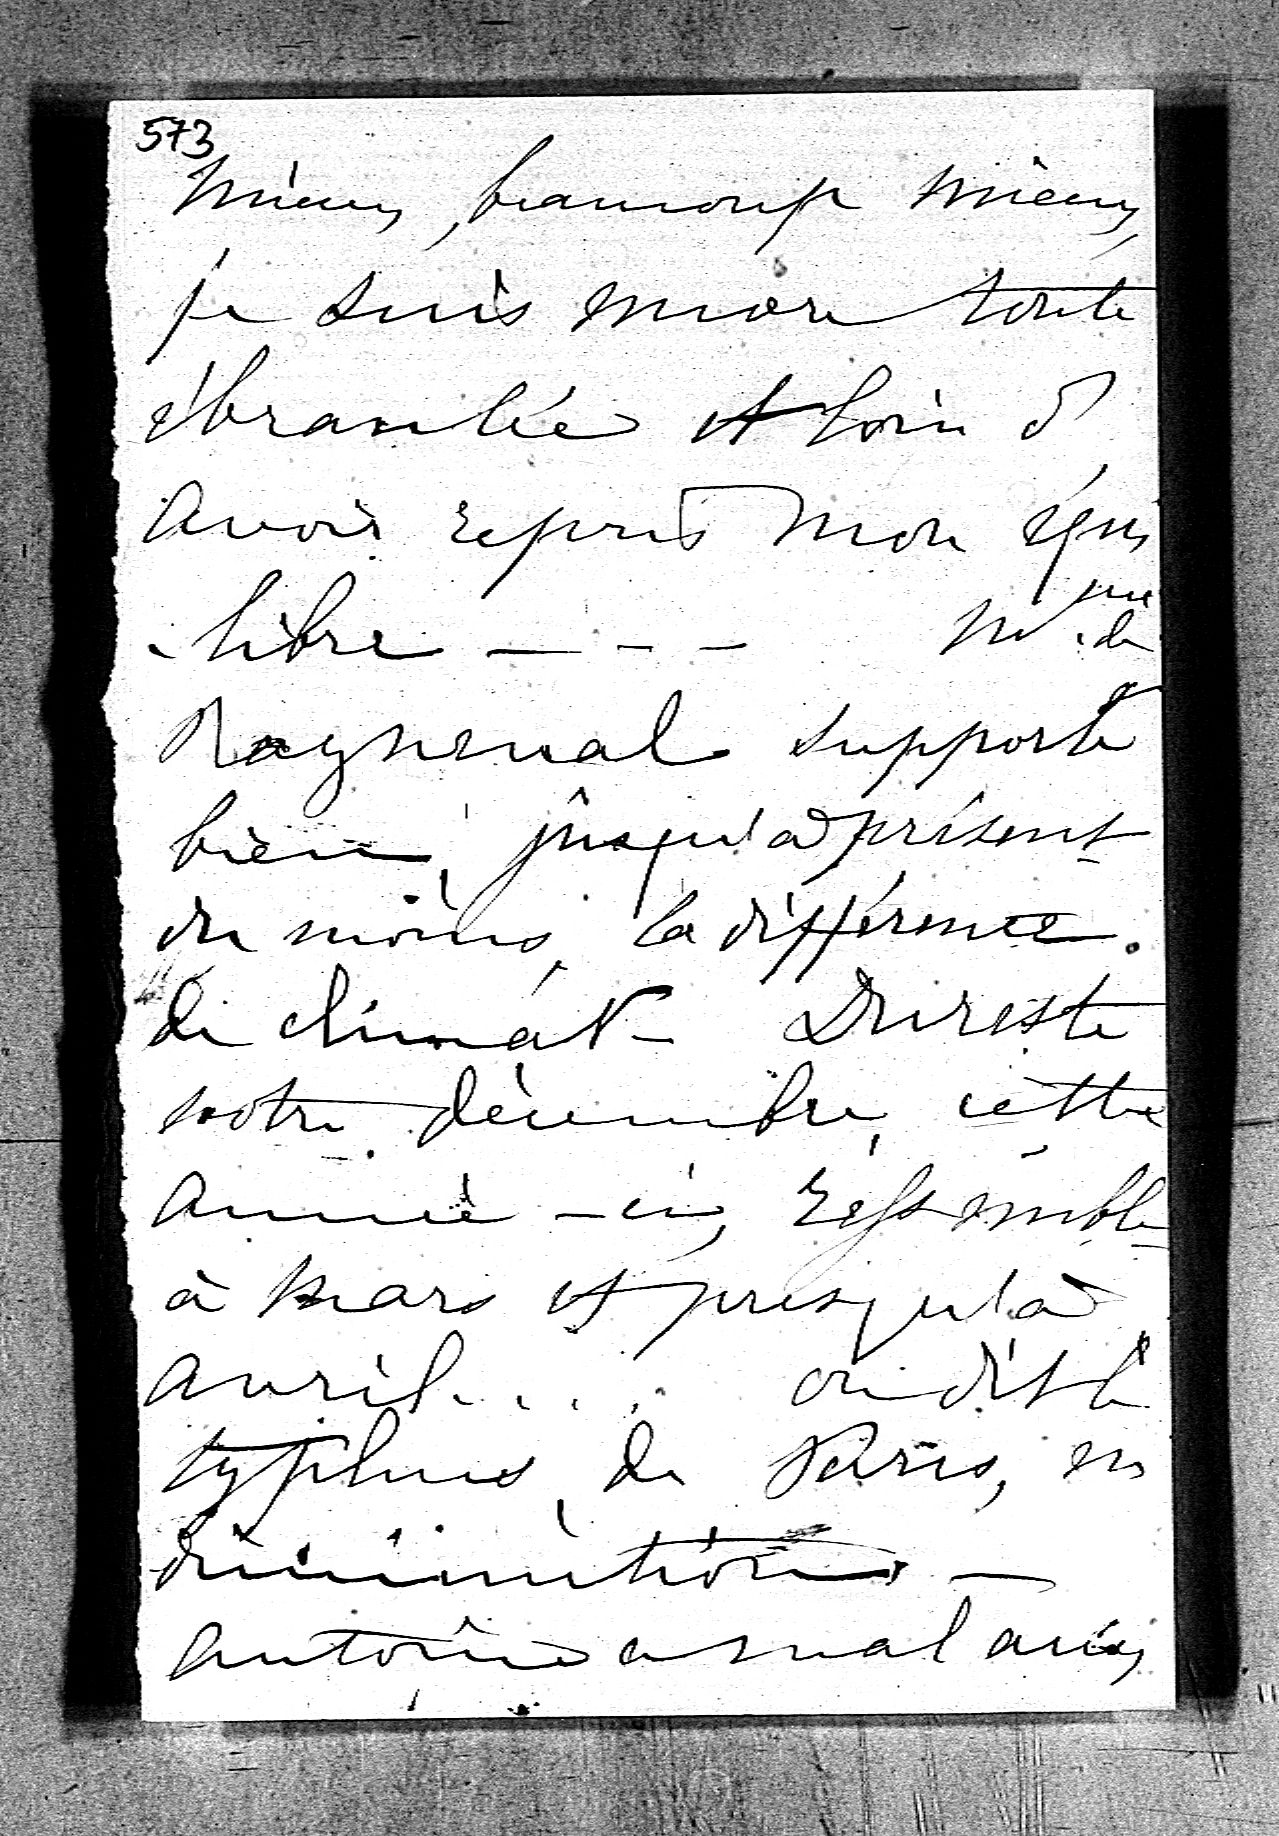 573
mieux, beaucoup mieux,
je suis encore toute
ébranlée et loin d'
avoir repris mon équi
-libre - - - Mme de
Rayneval supporte
bien, jusqu'à présent
du moins, la différence
de climat - Du reste
notre décembre, cette
année-ci, ressemble
à mars et presqu'à
avril.... on dit le
typhus, de Paris, en
diminution -
Antoine a mal aux